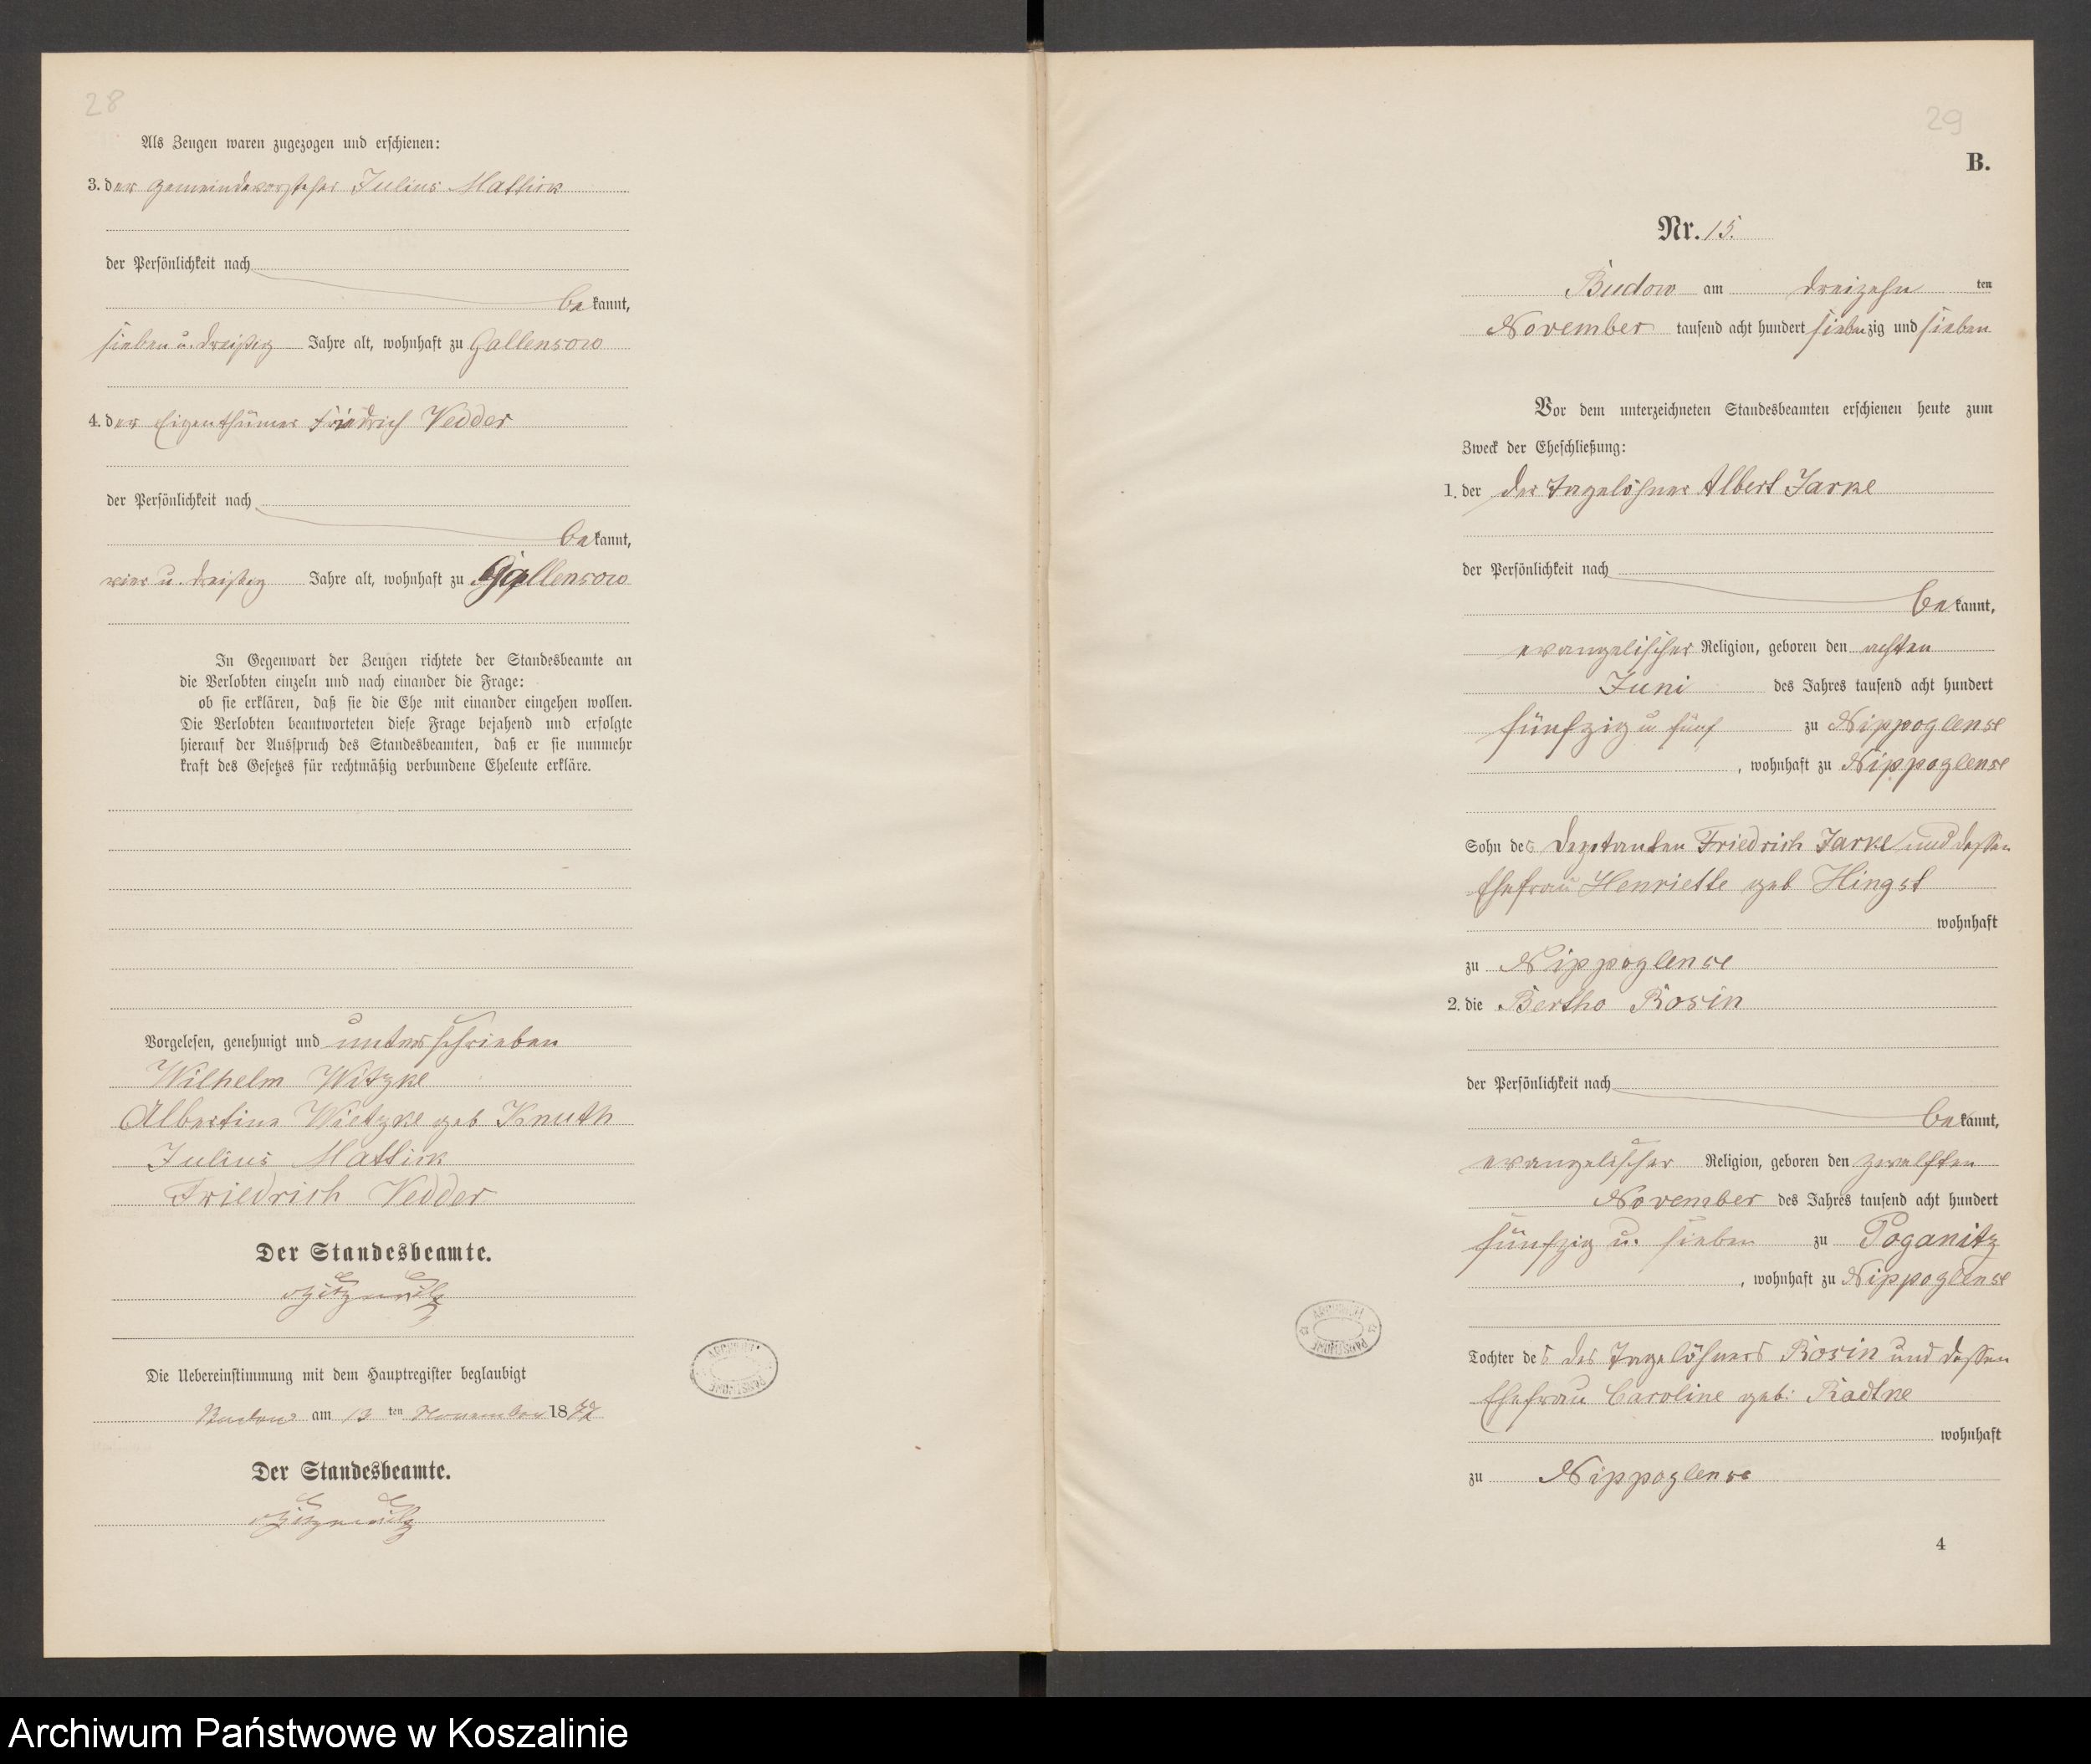 28
Als Zeugen waren zugezogen und erschienen:
3. der Gemeindevorsteher Julius Mallick
der Persönlichkeit nach
bekannt,
sieben u. dreißig Jahre alt, wohnhaft zu Gallensow
4. der Eigenthümer Friedrich Vedder
der Persönlichkeit nach
bekannt,
vier u. dreißig Jahre alt, wohnhaft zu Gallensow
In Gegenwart der Zeugen richtete der Standesbeamte an
die Verlobten einzeln und nach einander die Frage:
ob sie erklären, daß sie die Ehe mit einander eingehen wollen.
Die Verlobten beantworteten diese Frage bejahend und erfolgte
hierauf der Ausspruch des Standesbeamten, daß er sie nunmehr
kraft des Gesetzes für rechtmäßig verbundene Eheleute erkläre.
Vorgelesen, genehmigt und unterschrieben
Wilhelm Witzke
Albertine Wietzke geb Knuth
Julius Mallick
Friedrich Vedder
Der Standesbeamte.
Die Uebereinstimmung mit dem Hauptregister beglaubigt
Budow am 13 ten November 1877
Der Standesbeamte.
29
B.
Nr. 15.
Budow am dreizehn ten
November tausend acht hundert siebenzig und sieben
Vor dem unterzeichneten Standesbeamten erschienen heute zum
Zweck der Eheschließung:
1. der der Tagelöhner Albert Jarke
der Persönlichkeit nach
bekannt,
evangelischer Religion, geboren den achten
Juni des Jahres tausend acht hundert
fünfzig u fünf zu Nippoglense
, wohnhaft zu Nippoglense
Sohn des Deputanten Friedrich Jarke und dessen
Ehefrau Henriette geb Hingst
wohnhaft
zu Nippoglense
2. die Bertha Rosin
der Persönlichkeit nach
bekannt,
evangelischer Religion, geboren den zwölften
November des Jahres tausend acht hundert
fünfzig u. sieben zu Poganitz
, wohnhaft zu Nippoglense
Tochter des des Tagelöhners Rosin und dessen
Ehefrau Caroline geb: Radtke
wohnhaft
zu Nippoglense
4
Archiwum Państwowe w Koszalinie